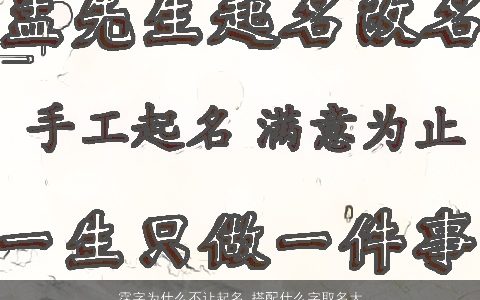 先生起名改名
手工起名 满意为止
一生只做一件事
字为什么不让起名 搭配什么字取名大